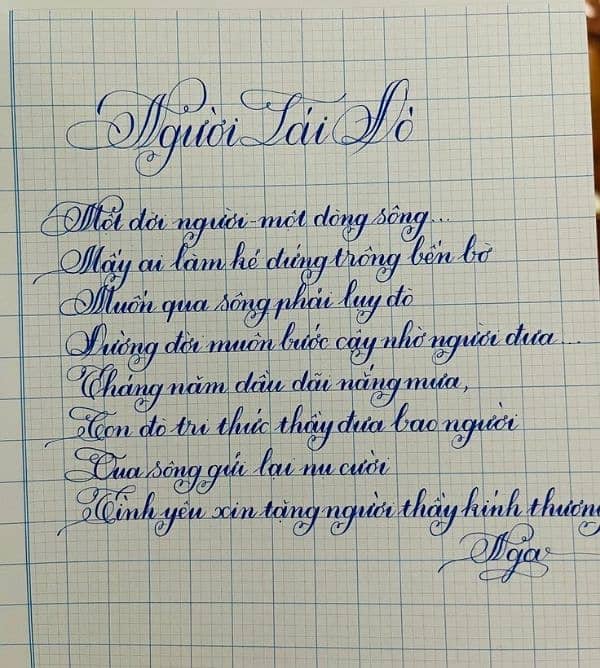 Người Lái Đò
Một đời người-một dòng sông...
Mấy ai làm kẻ đứng trông bến bờ
Muốn qua sông phải luỵ đò
Đường đời muôn bước cậy nhờ người đưa...
Tháng năm dầu dãi nắng mưa,
Con đò tri thức thầy đưa bao người
Qua sông gửi lại nụ cười
Tình yêu xin tặng người thầy kính thương
Nga